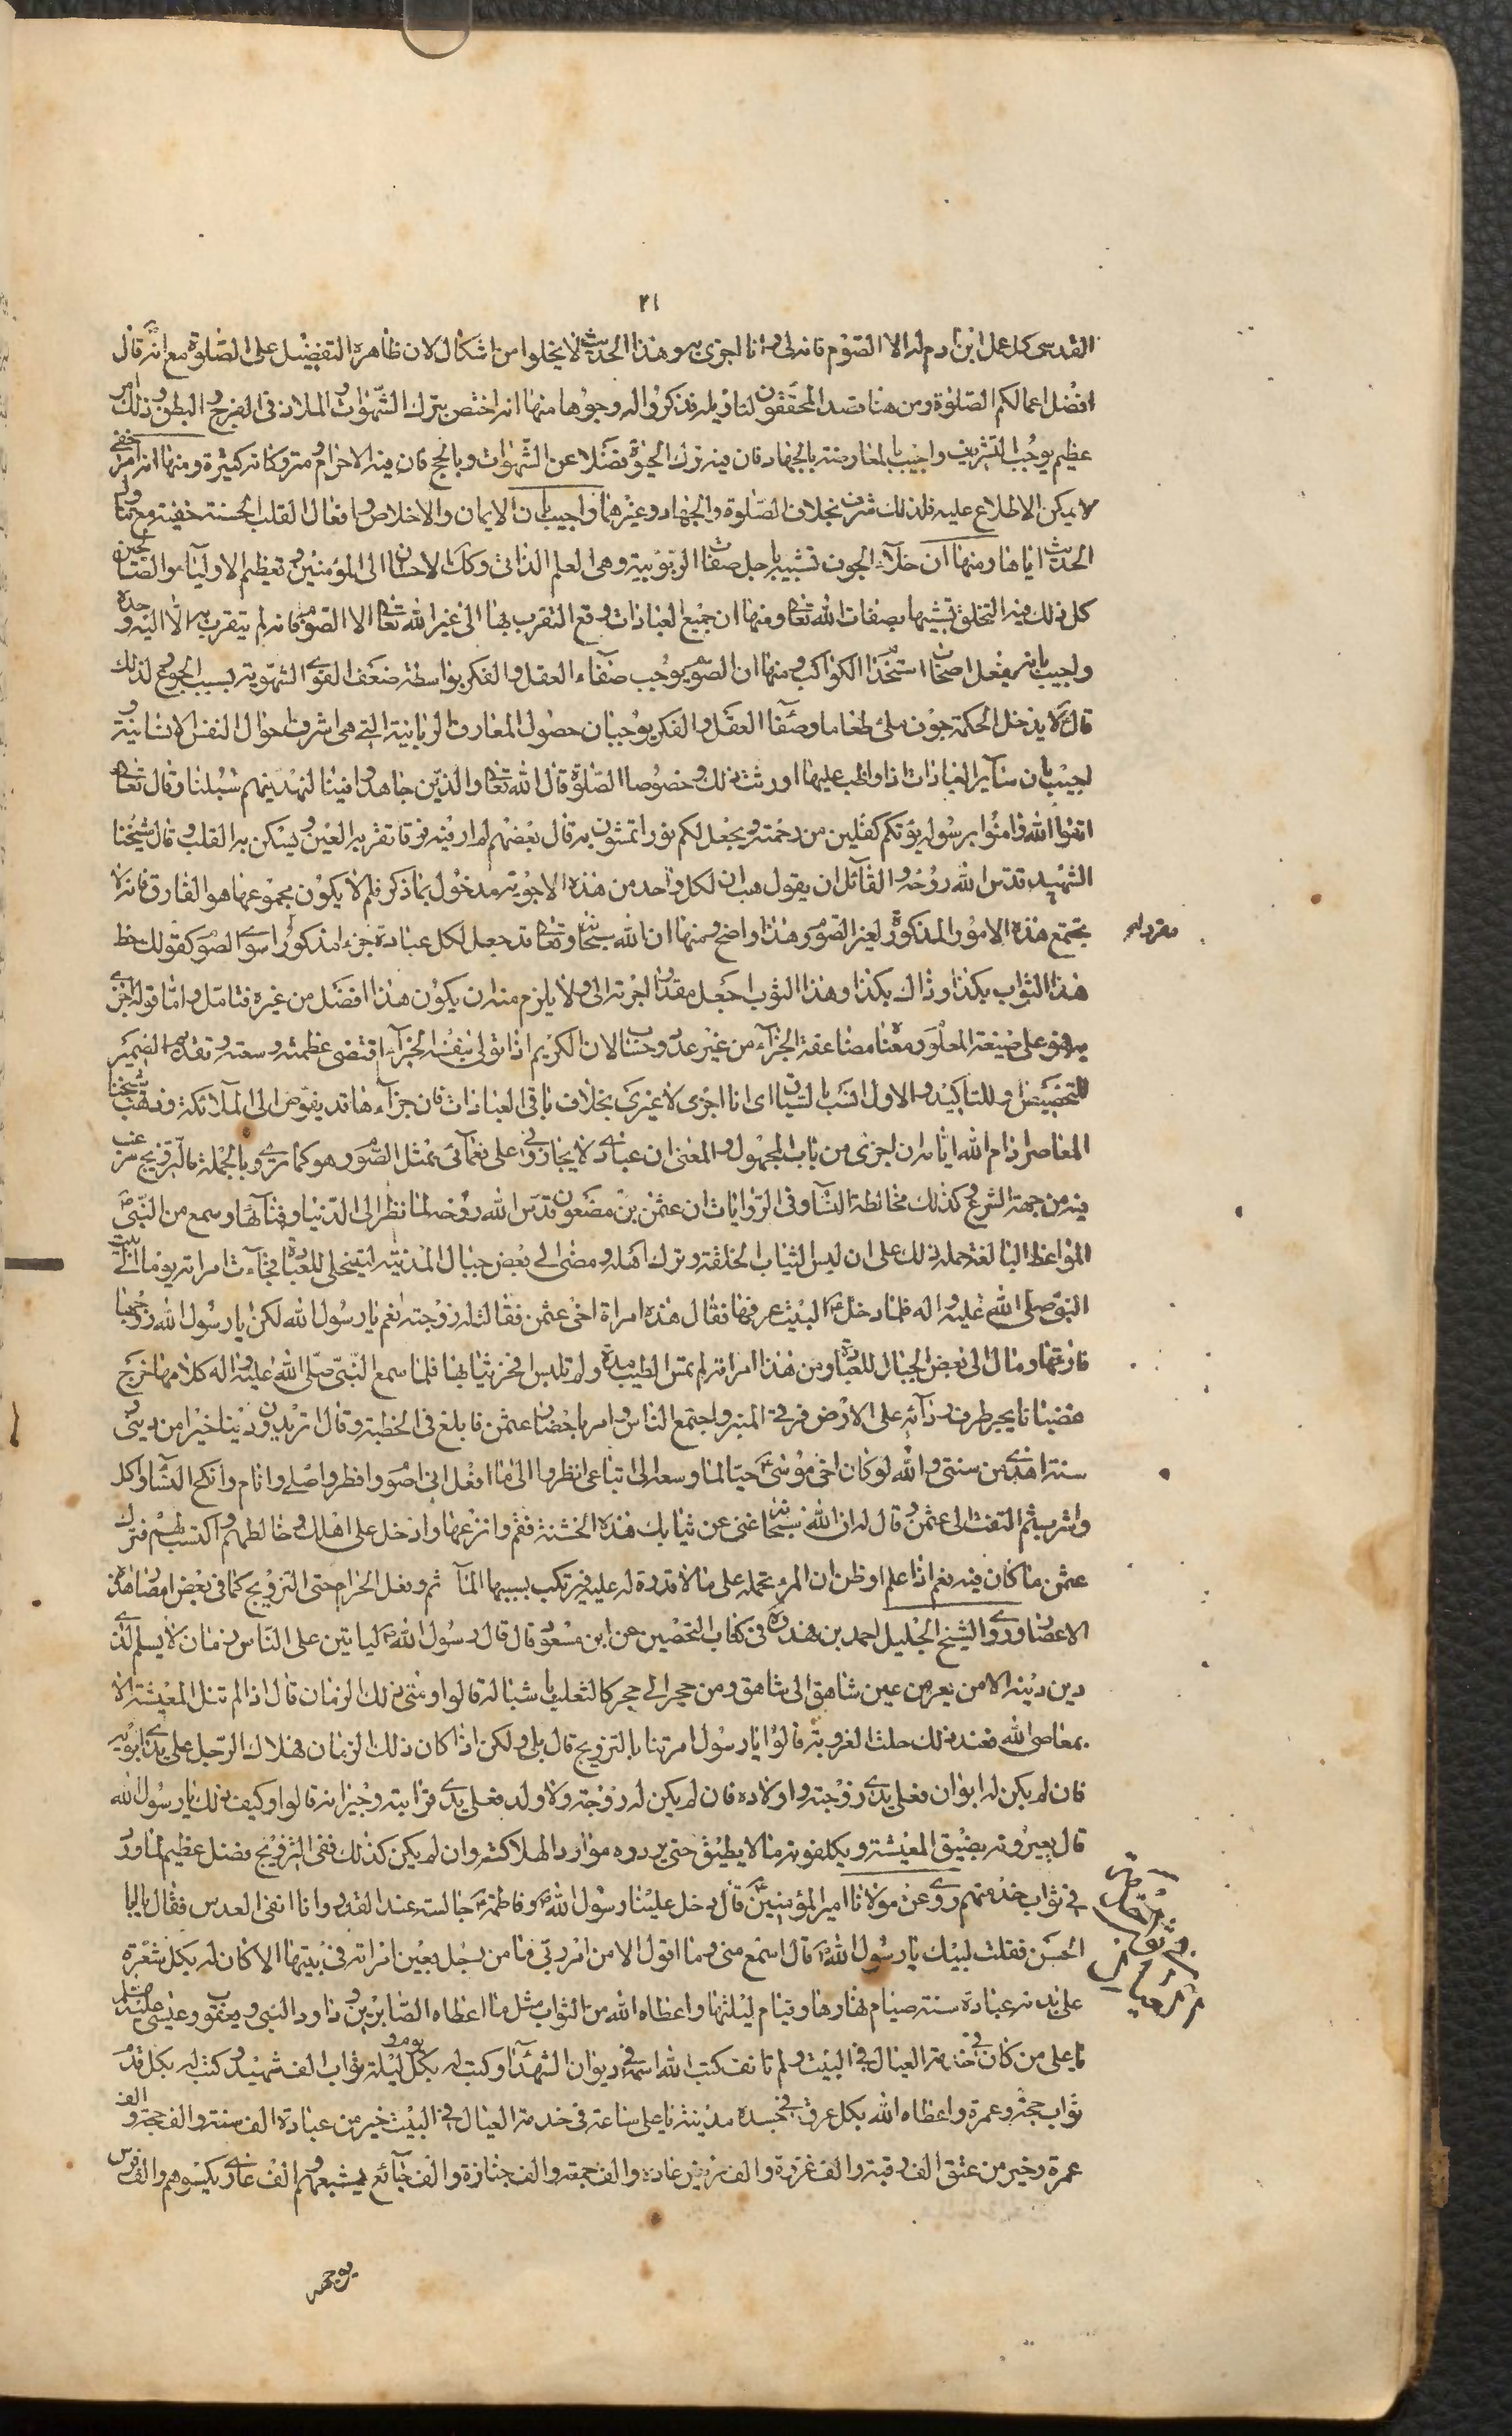 ٢١
القدسى كل عمل ابن ادم له الا الصّوم فانه لى و انا اجزى به و هذا الحديث لا يخلوا من اشكال لان ظاهره التفضيل على الصّلوة مع انه قال
افضل اعمالكم الصّلوة و من هنا تصدا المحقّقون لتاويله فذكروا له وجوها منها انه اختص بترك الشّهوات و الملاذ فى الفرج و البطن و ذلك امر
عظيم يوجب التشريف و اجيب بالمعارضة بالجهاد فان فيه ترك الحيوة فضلا عن الشّهوات و بالحج فان فيه الاحرام و متروكاته كثيرة و منها انه امر خفى
لا يمكن الاطلاع عليه فلذلك شرف بخلاف الصّلوة و الجهاد و غيرهما و اجيب بان الايمان و الاخلاص و افعال القلب الحسنة خفية مع تناول
الحديث اياها و منها ان خلاء الجوف تشبيه باجل صفات الربوبية و هى العلم الذاتى و كك الاحسان الى المؤمنين و تعظيم الاولياء و الصالحين
كل ذلك فيه التخلق تشبيها بصفات الله تعالى و منها ان جميع العبادات وقع التقرب بها الى غير الله تعالى الا الصوم فانه لم يتقرب به الا اليه وحده
و اجيب بانه يفعل اصحاب استخدام الكواكب و منها ان الصوم يوجب صفاء العقل و الفكر بواسطة ضعف القوى الشهوية بسبب الجوع لذلك
قال ع لا يدخل الحكمة جوف ملئ طعاما و صفاء العقل و الفكر يوجبان حصول المعارف الربانية التى هى اشرف احوال النفس الانسانية و
اجيب بان ساير العبادات اذا واظب عليها اورثت ذلك و خصوصا الصّلوة قال الله تعالى و الذين جاهدوا فينا لنهدينهم سبلنا و قال تعالى
اتقوا الله و امنوا برسوله يؤتكم كفلين من رحمته و يجعل لكم نورا تمشون به قال بعضهم لم ار فيه فرقا تقر به العين و يسكن به القلب و قال شيخنا
الشهيد قدس الله روحه و لقائل ان يقول هب ان لكل واحد من هذه الاجوبة مدخول بما ذكر فلم لا يكون مجموعها هو الفارق فانه لا
يجتمع هذه الامور المذكورة لغير الصوم و هذا واضح و منها ان الله سبحانه و تعالى قد جعل لكل عبادة جزء مذكورا سوى الصوم كقولك خط
هذا الثوب بكذا و ذاك بكذا و هذا الثوب اجعل مقدار اجرته الى و لا يلزم منه ان يكون هذا افضل من غيره فتامل و امّا قوله اجزى
به فهو على صيغة المعلوم و معناه مضاعفة الجزاء من غير عدد و حساب لان الكريم اذا تولى بنفسه الجزاء اقتضى عظمته و سعته و تقديم الضمير
للتخصيص و للتاكيد و الاول انسب بالسياق اى انا اجزى لا غيرى بخلاف باقى العبادات فان جزاءها قد يفوض الى الملائكة و ذهب شيخنا
المعاصر ادام الله ايامه ان اجزى من باب المجهول و المعنى ان عبادى لا يجازونى على نعمائى بمثل الصوم و هو كما ترى و بالجملة فالتزويج مرغب
فيه من جهة الشرع و كذلك مخالطة النساء و فى الروايات ان عثمن بن مضعون قدس الله روحه لما نظر الى الدّنيا و فنائها و سمع من النّبىّ ص
المواعظ البالغة حمله ذلك على ان لبس الثياب الخلقة و ترك اهله و مضى الى بعض جبال المدينة ليتخلى للعبادة فجاءت امراته يوما الى بيت
النبى صلى الله عليه و اله فلما دخل ص البيت عرفها فقال هذه امراة اخى عثمن فقالت له زوجته نعم يا رسول الله لكن يا رسول الله زوجها
فارقها و مال الى بعض الجبال للعبادة و من هذا امراته لم تمس الطيب مدة و لم تلبس افخر ثيابها فلما سمع النّبىّ صلّى الله عليه و اله كلامها خرج
مغضبا يجر طرف ردائه على الارض فرقى المنبر و اجتمع الناس و امر باحضار عثمن فابلغ فى الخطبة و قال اتريدون دينا خيرا من دينى و
سنة اهدى من سنتى و الله لو كان اخى موسى ع حيّا لما وسعه الى اتباعى انظروا الى ما افعل انى اصوم و افطر و اصلى و انام و انكح النساء و اكل
و اشرب ثم التفت الى عثمن و قال له ان الله سبحانه غنى عن ثيابك هذه الخشنة فقم و انزعها و ادخل على اهلك و خالطهم و اكتسب لهم فترك
عثمن ما كان فيه نعم اذا علم او ظن ان المرء تحمله على ما لا قدرة له عليه فيرتكب بسببها المآثم و فعل الحرام حتى التزويج كما فى بعض امصار هذه
الاعصار و روى الشيخ الجليل احمد بن فهد ره فى كتاب التحصين عن ابن مسعود قال قال رسول الله ص لياتين على النّاس زمان لا يسلم لذى
دين دينه الا من يفر من شاهق الى شاهق و من حجر الى حجر كالثعلب باشباله قالوا و متى ذلك الزمان قال اذا لم تنل المعيشة الا
بمعاصى الله فعند ذلك حلت الغروبة قالوا يا رسول امرتنا بالتزويج قال بلى و لكن اذا كان ذلك الزمان فهلاك الرّجل على يدى ابويه
فان لم يكن له ابوان فعلى يدى زوجته و اولاده فان لم يكن له زوجة و لا ولد فعلى يدى قرابته و جيرانه قالوا و كيف ذلك يا رسول الله
قال يعيرونه بضيق المعيشة و يكلفونه ما لا يطيق حتى يوردوه موارد الهلاكة و ان لم يكن كذلك ففى التزويج فضل عظيم لما ورد
فى ثواب خدمتهم روى عن مولانا امير المؤمنين ع قال دخل علينا رسول الله ص و فاطمة ع جالسة عند القدر و انا انقى العدس فقال يا ابا
الحسن فقلت لبيك يا رسول الله ص قال اسمع منى و ما اقول الا من امر ربى ما من رجل يعين امراته فى بيتها الا كان له بكل شعرة
على بدنه عبادة سنة صيام نهارها و قيام ليلتها و اعطاه الله من الثواب مثل ما اعطاه الصّابرين و داود النبى و يعقوب و عيسى عليهم السلام
يا على من كان فى خدمة العيال فى البيت و لم يانف كتب الله اسمه فى ديوان الشهداء و كتب له بكل يوم و ليلة ثواب الف شهيد و كتب له بكل قدم
ثواب حجة و عمرة و اعطاه الله بكل عرق فى جسده مدينة يا على ساعة فى خدمة العيال فى البيت خير من عبادة الف سنة و الف حجة و الف
عمرة و خير من عتق الف رقبة و الف غزوة و الف مريض عاده و الف جمعة و الف جنازة و الف جائع يشبعهم و الف عارى يكسوهم و الف فرس
يوجهه